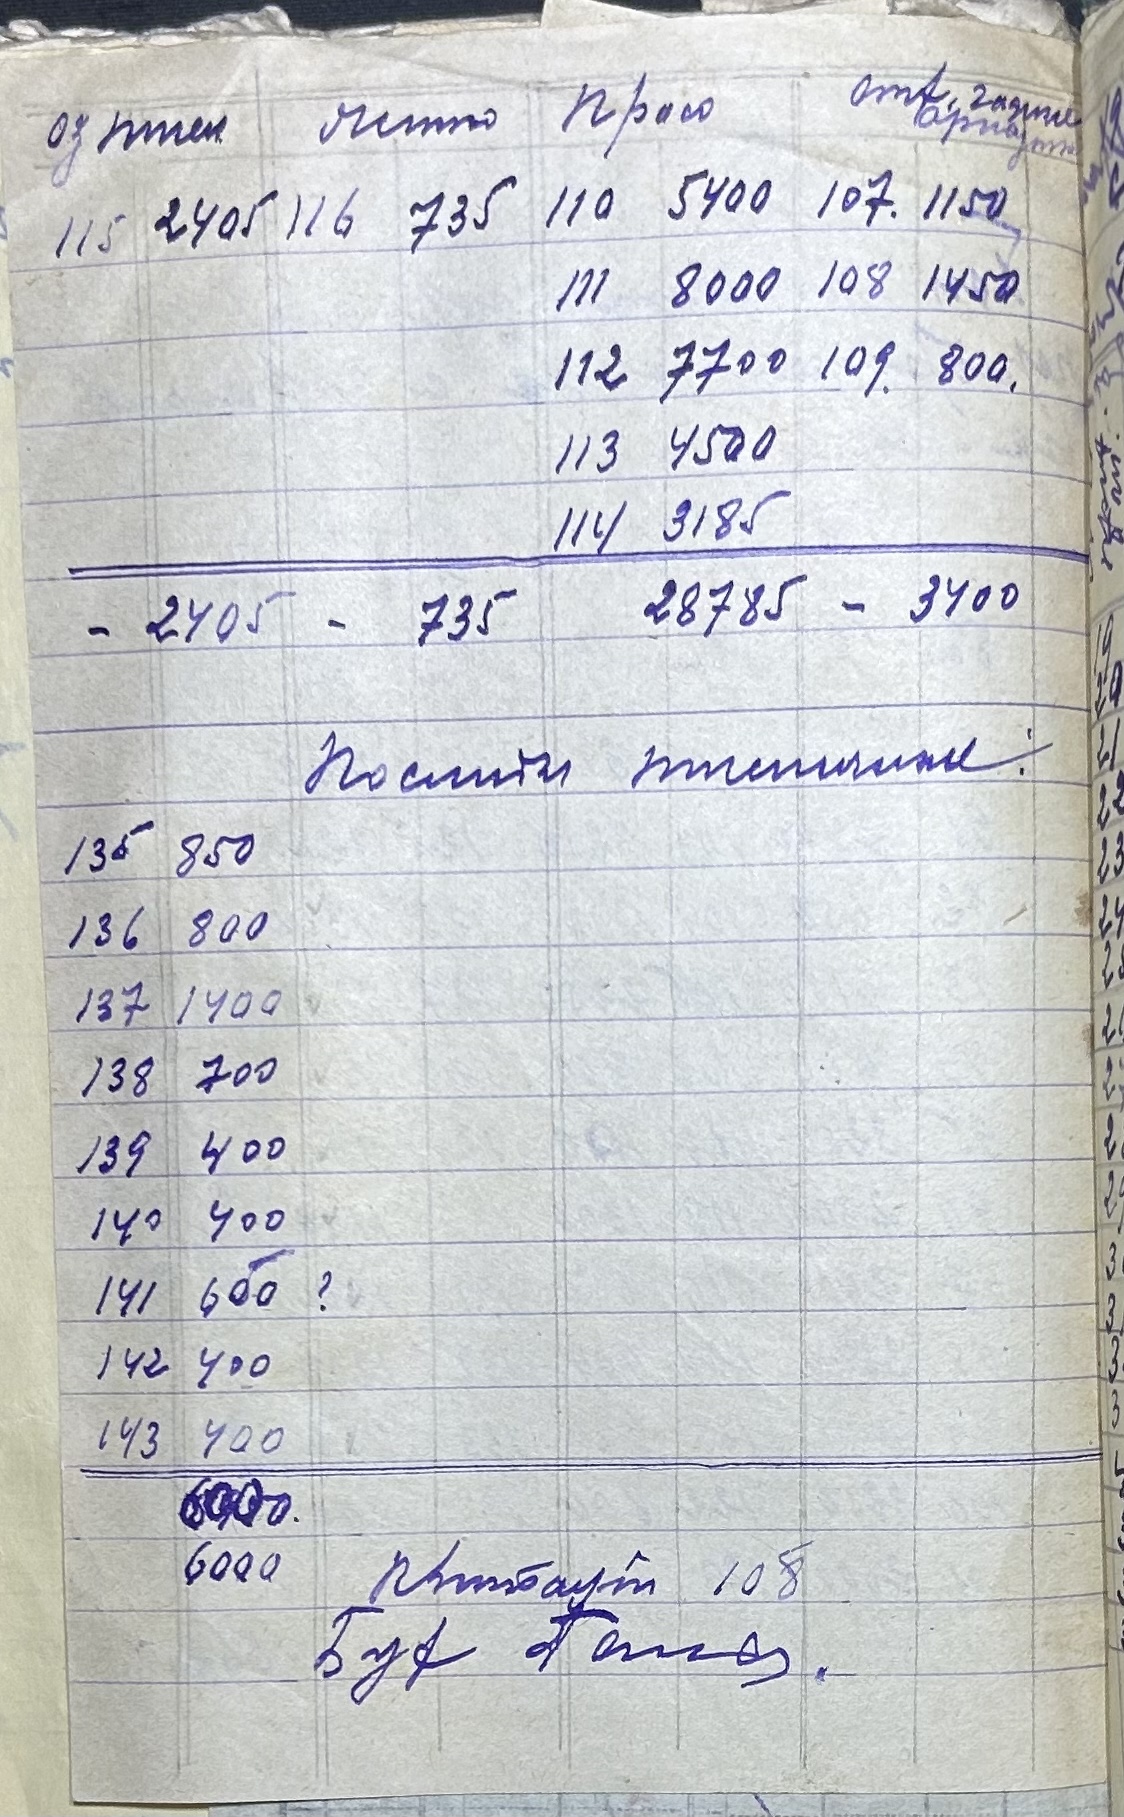 Оз пшен Ячмінь Просо отх. гадине бригадн
115 2405 116 735 110 5400 107. 1150
111 8000 108 1450
112 7700 109. 800.
113 4500
114 3185
- 2405 - 735 28785 - 3400
Послити пшенични:
135 850
136 800
137 1400
138 700
139 400
140 400
141 600 ?
142 400
143 400
6000.
6000 Квитанцій 108
Бух